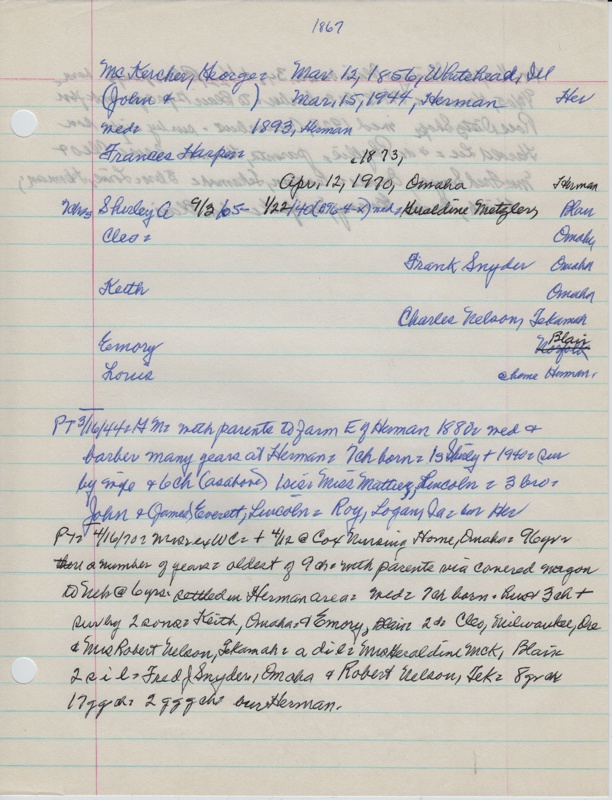 1867
McKercher, George = Mar. 12, 1856, Whitehead, Ill
(John & ) Mar, 15, 1944, Herman Her
med = 1893, Herman
Frances Harper = c1873,
Apr, 12, 1970, Omaha Herman
7chn= Shirley A 9/3/65 - 1/22/40 (896-4-x) med = Geraldine Metzler, Blair
Cleo = Omaha,
Frank Snyder Omaha
Keith Omaha
Charles Nelson, Tekamah
Emory Blair
Louis @home Herman.
PT 3/16/44 = with parents to Farm E of Herman 1880 = med &
barber many years at Herman = 7ch born = 1 Shirley + 1940 = sur
by wife & 6ch (asabove) 1sis = Miss Mattie, Lincoln = 3 bro =
John & James Everett, Lincoln = Roy, Logan, Ia = bur Her
PT = 4/16/70 = WC = + 4/12 @ Cox Nursing Home, Omaha = 96yr =
there a number of years = oldest of 9ch = with parents via covered wagon
to Neb @ 6yrs = settled in Herman area = med = 7ch born = 3ch +
sur by 2 sons = Keith, Omaha & Emory, Blair = 2d = Cleo, Milwaukee, Ore
& Mrs Robert Nelson, Tekamah = a dil = Mrs Geraldine McK, Blair
2sil = Fred J Snyder, Omaha & Robert Nelson, Tek = 8grch
17ggch = 2gggch = bur Herman.